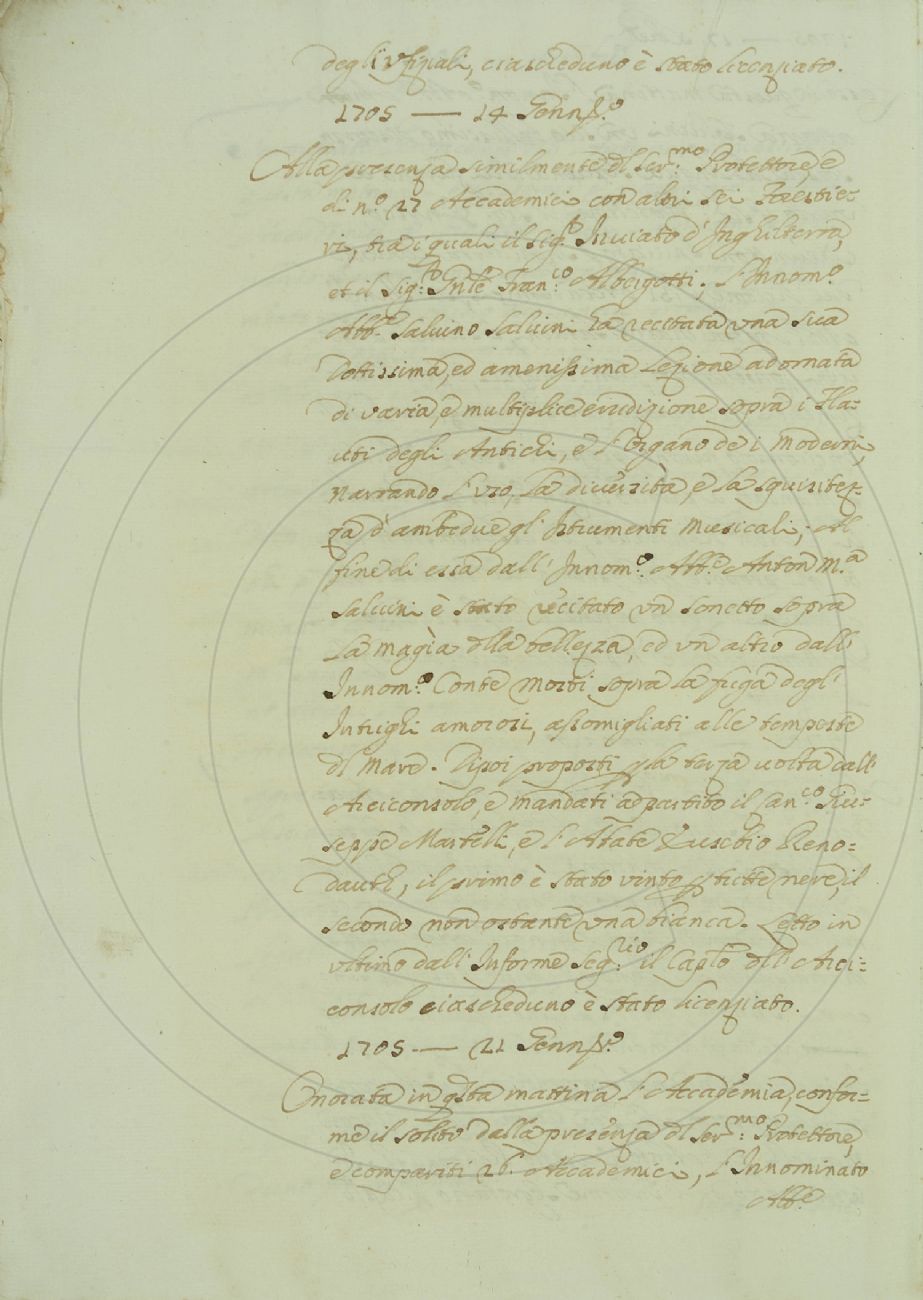 degli Ufiziali, ciascheduno è stato licenziato.
1705 — 14 Genn.º
Alla presenza similmente dl Ser.mo Protettore, e
di n.º 27 Accademici con altri sei Forestie-
ri, tra i quali il Sig.r Inviato d'Inghilterra,
et il Sig.r Gnle Fran.co Albergotti, l'Innom.º
Abb.e Salvino Salvini ha recitata una sua
Dottissima, ed amenissima Lezione adornata
di varia, e multiplice erudizione sopra i Fla-
uti degli Antichi, e l'Organo de i Moderni,
Narrando l'uso, la diversità, e la squisitez-
za d'ambedue gl'Istrumenti Musicali; Al
fine di essa dall'Innom.º Abb.e Anton M.a
Salvini è stato recitato un sonetto sopra
La magia dlla bellezza, ed un altro dall'
Innom.º Conte Mozzi sopra la fuga degl'
Intrighi amorosi, assomigliati alle tempeste
dl Mare. Dipoi proposti p la terza volta dall'
Arciconsolo, e mandati ad partito il Can.co Giu-
seppe Martelli, e l'Abate Eusebio Reno=
dauth, il primo è stato vinto p tutte nere, il
secondo non ostante una bianca. Letto in
ultimo dall'Informe Seg.rio il Caplo dll'Arci=
consolo ciascheduno è stato licenziato.
1705 — 21 Genn.º
Onorata in qsta mattina l'Accademia, confor=
me il solito dalla presenza dl Ser.mo Protettore,
e compariti 26. Accademici, l'Innominato
Abb.e